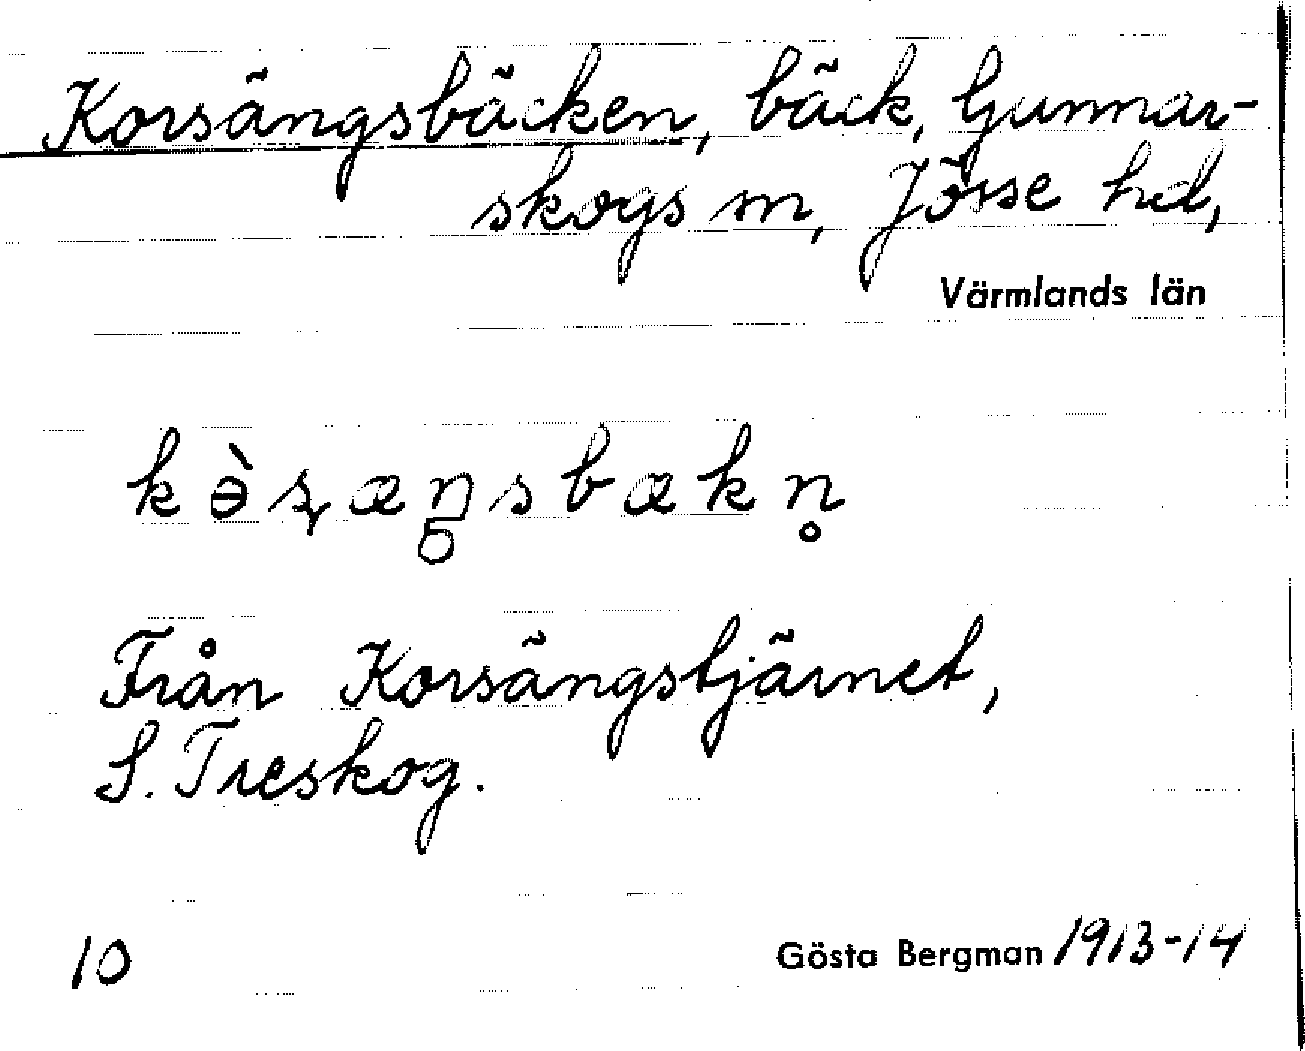 Korsängsbäcken, bäck, Gunnar-
skogs sn, Jösse hd,
Värmlands län
kə̀ʂæŋsbækn̥
Från Korsängstjärnet,
S. Treskog.
10 Gösta Bergman 1913-14